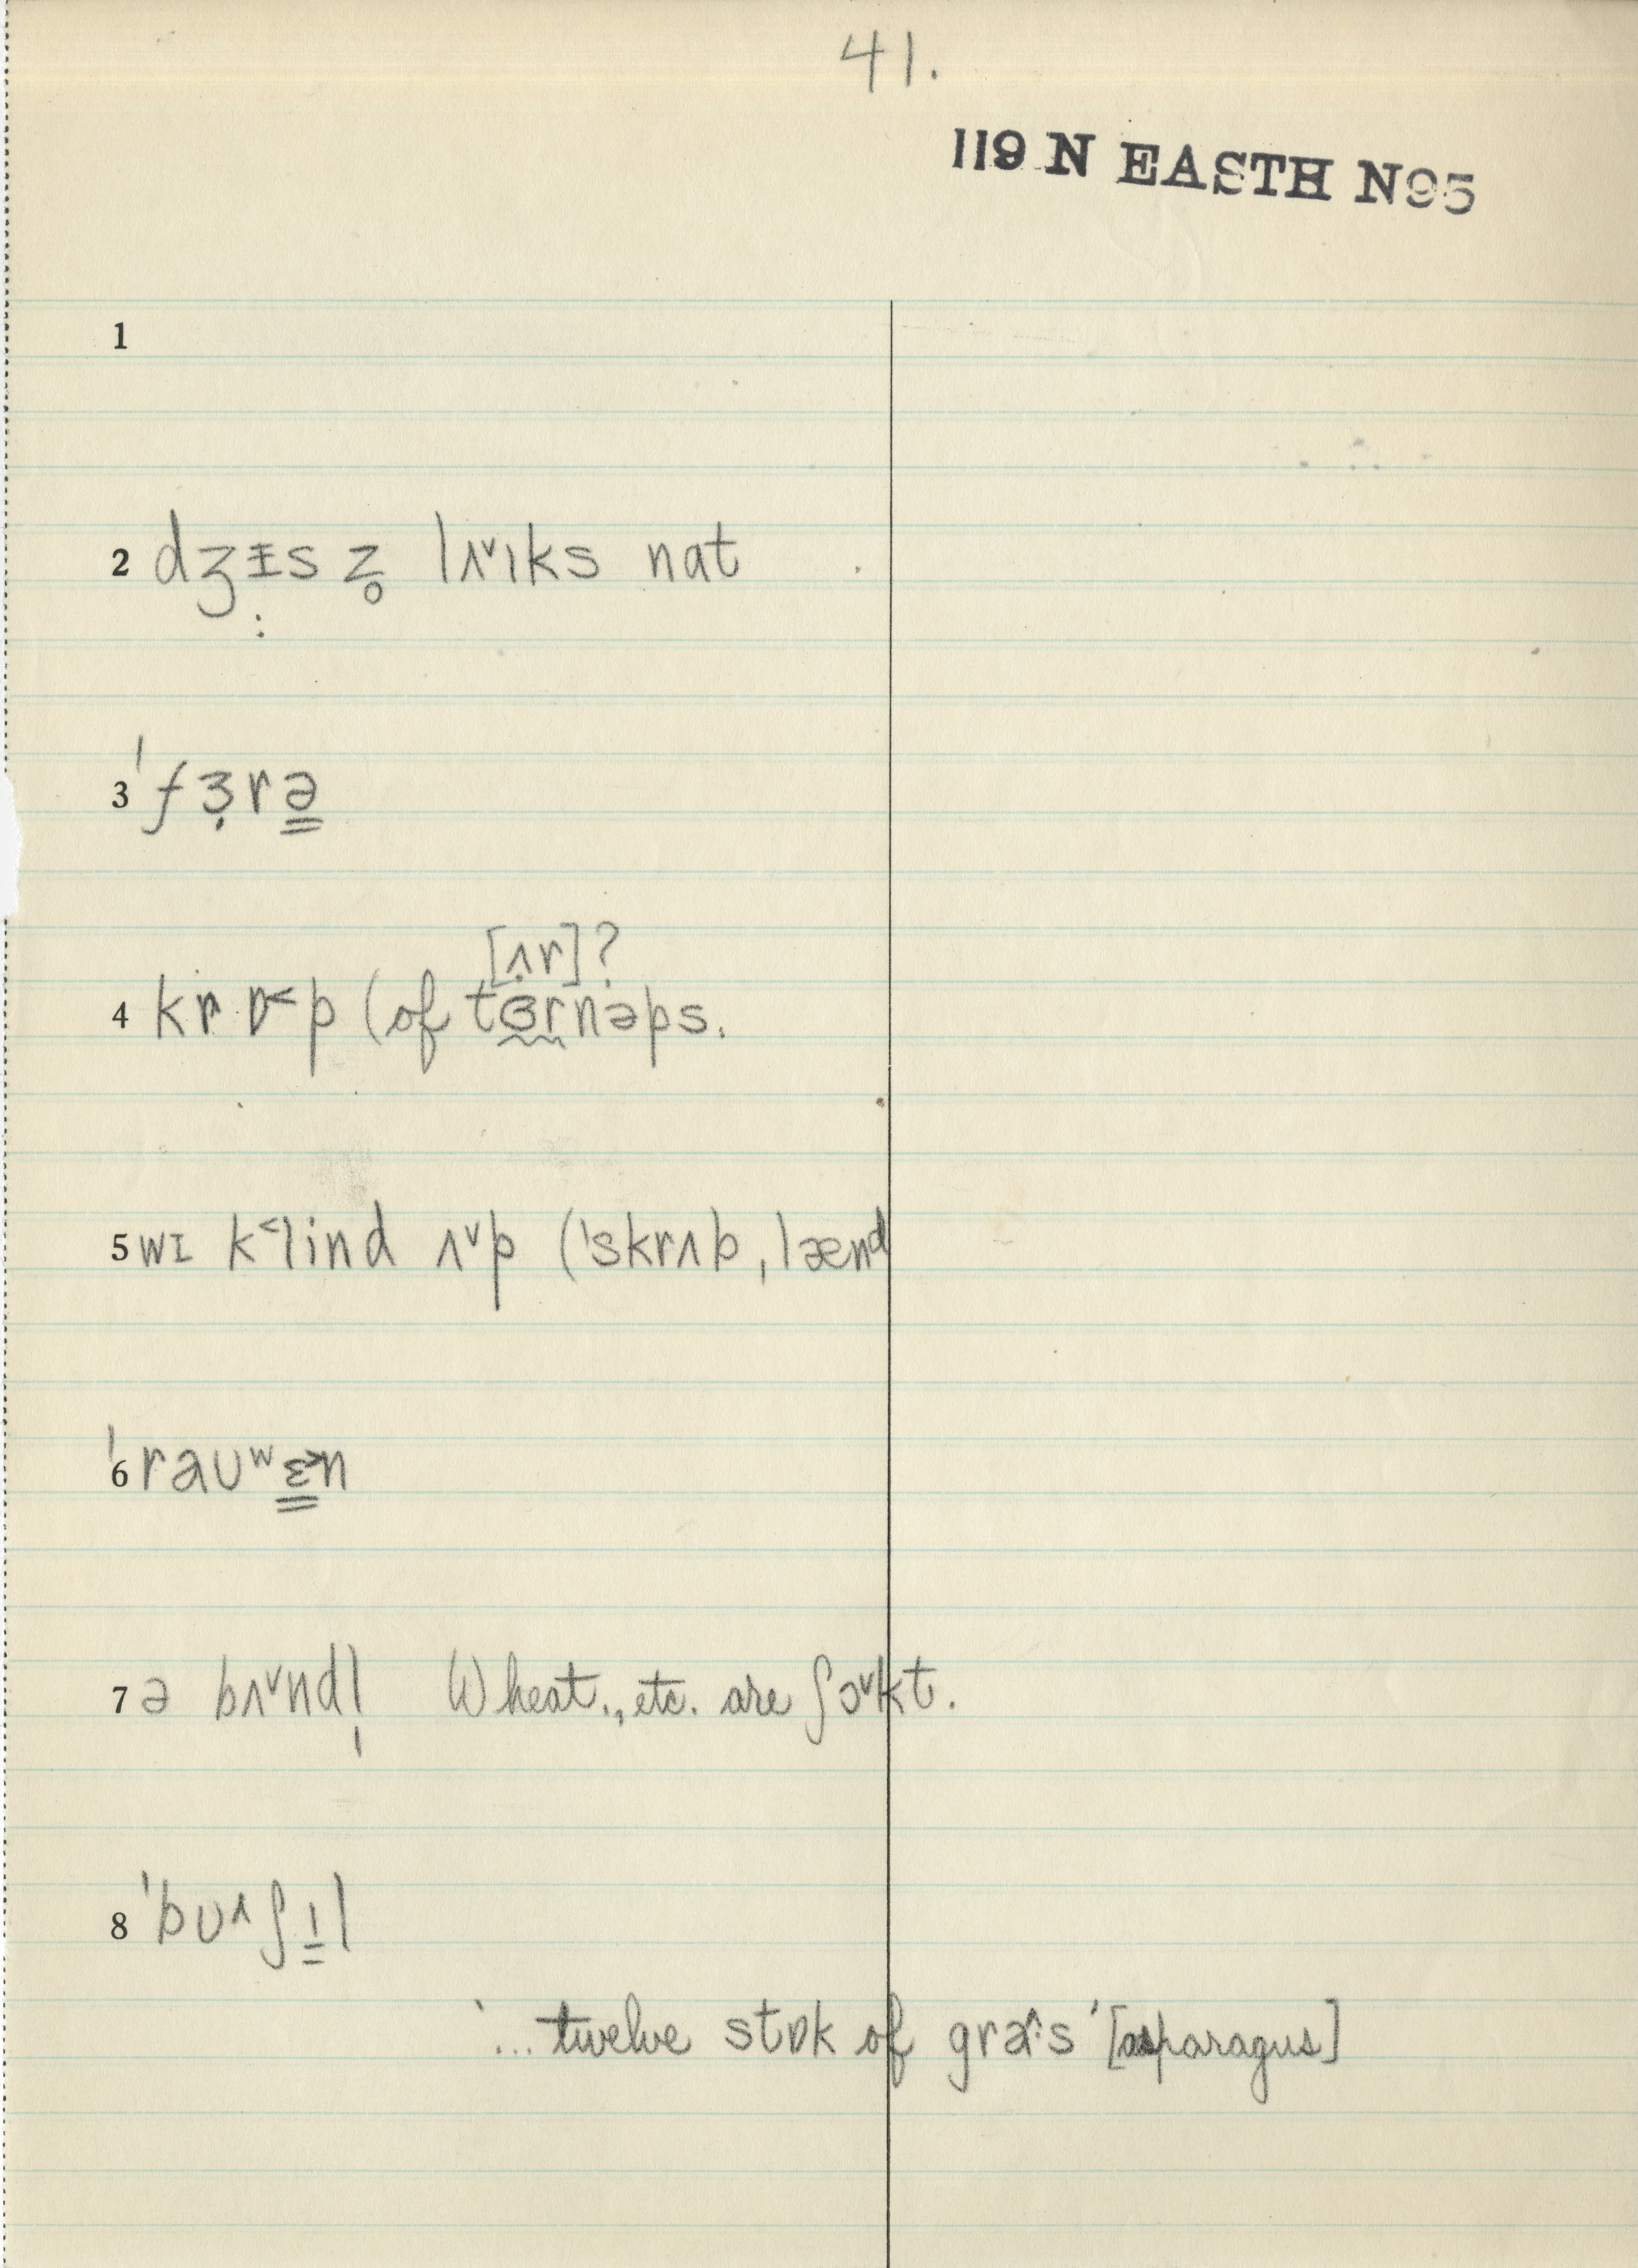 41.
119 N EASTH N95
1
2 dʒɪ̵̣s z̥ lʌ˅ɪks nat
3 ˈfɜ̣rə̳
[ʌ̣r]?
4 kr ɒ˂p (of tɜrnəps.
5 wɪ k˂lind ʌ˅p (ˈskrʌbˌlænd
6 ˈraʊʷɛ̳˃n
7 ə bʌ˅ndl̩ Wheat., etc. are ʃɔ˅kt.
8 ˈbʊ˄ʃɪ̳l
‛... twelve stɒk of gra˄·s ’ [asparagus]